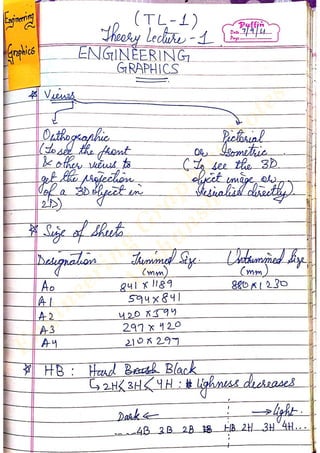 Engineering
Graphics
(TL-1)
Theory Lecture - 1
ENGINEERING
GRAPHICS
Views
Orthographic
(To see the front
& other views to
get the projection
of a 3D object in
2D)
Pictorial
or Isometric
(To see the 3D
object image or
visualise directly).
Size of Sheets
Designation Trimmed Size (mm) Untrimmed Size (mm)
A0 841 x 1189 880 x 1230
A1 594 x 841
A2 420 x 594
A3 297 x 420
A4 210 x 297
HB : Hard Black
2H < 3H < 4H :
decreases
Dark ← → light
.....4B 3B 2B B HB H 2H 3H 4H...